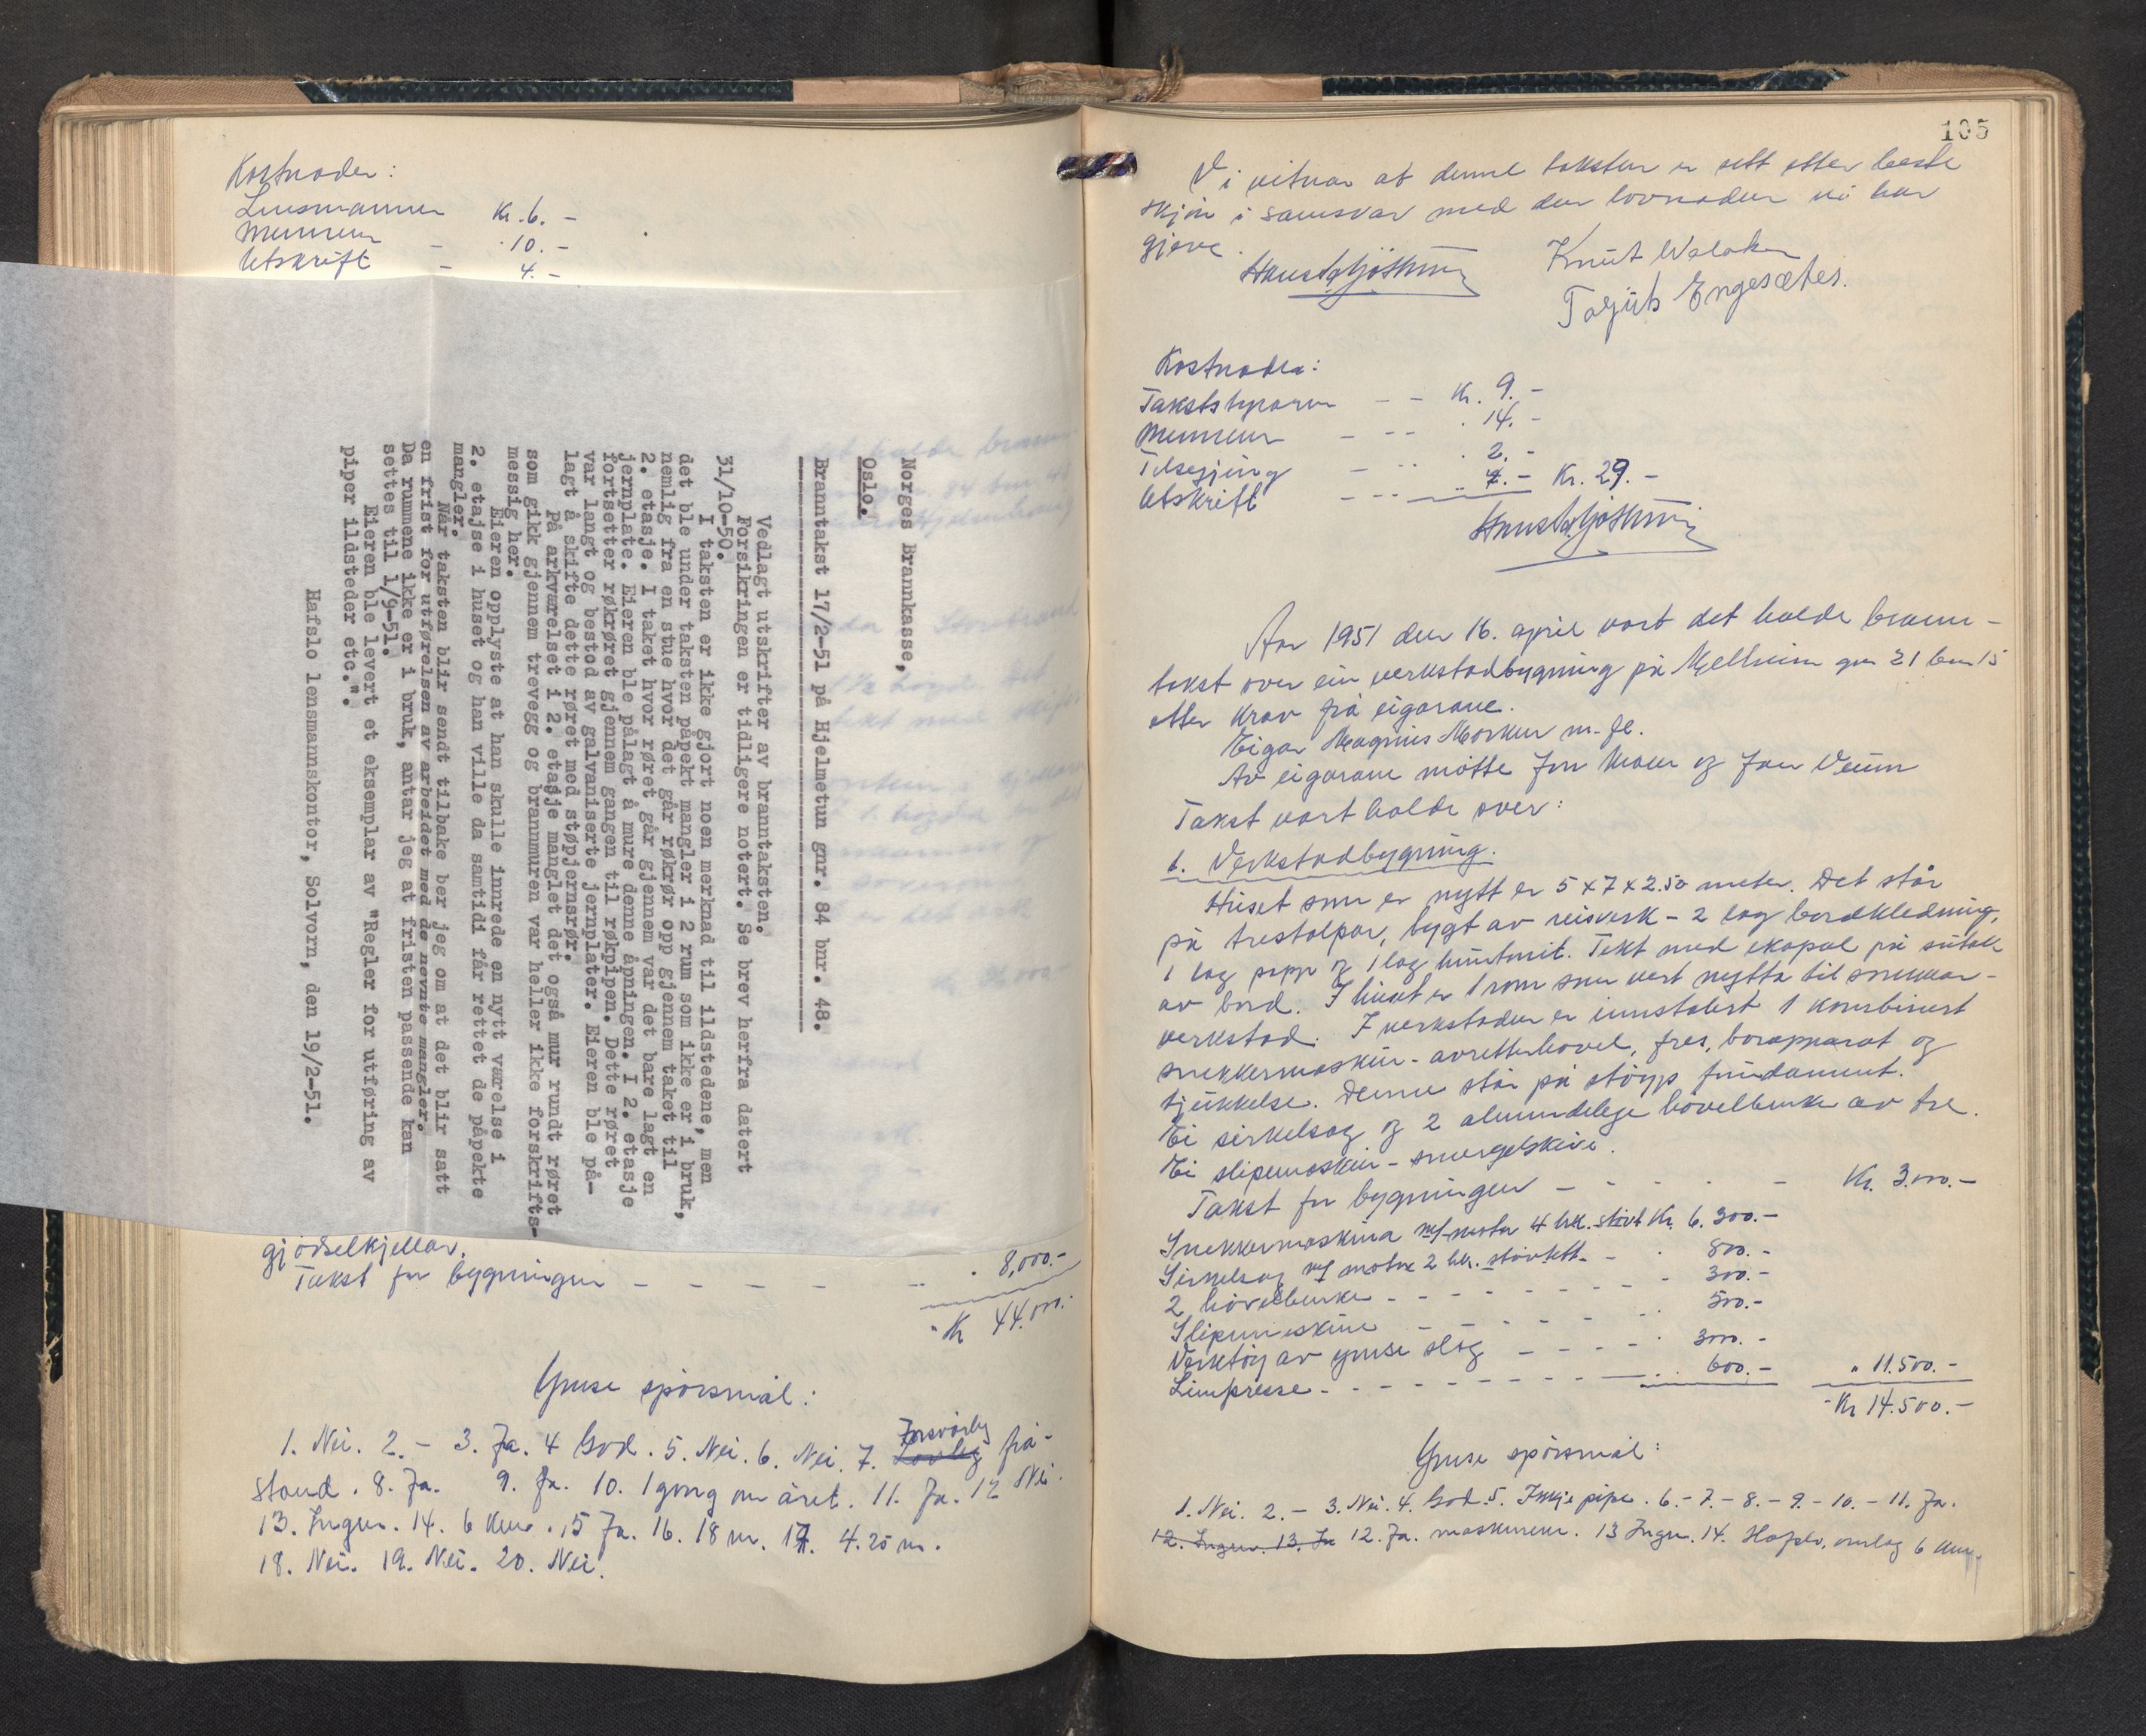 Kostnader:
Lensmannen Kr. 6. -
Mennene - . 10. -
Utskrift - 4. -
Norges Brannkasse,
Oslo.
Branntakst 17/2-51 på Hjelmetun gnr. 84 bnr. 48.
Vedlagt utskrifter av branntaksten.
Forsikringen er tidligere notert. Se brev herfra datert
31/10-50.
I taksten er ikke gjort noen merknad til ildstedene, men
det ble under taksten påpekt mangler i 2 rum som ikke er i bruk,
nemlig fra en stue hvor det går røkrør opp gjennem taket til
2. etasje. I taket hvor røret går gjennem var det bare lagt en
jernplate. Eieren ble pålagt å mure denne åpningen. I 2. etasje
fortsetter røkrøret gjennem gangen til røkpipen. Dette røret
var langt og bestod av galvaniserte jernplater. Eieren ble på-
lagt å skifte dette røret med støpjernsrør.
På arkværelset i 2. etasje manglet det også mur rundt røret
som gikk gjennem trevegg og brannmuren var heller ikke forskrifts-
messig her.
Eieren opplyste at han skulle innrede en nytt værelse i
2. etajse i huset og han ville da samtidi får rettet de påpekte
mangler.
Når taksten blir sendt tilbake ber jeg om at det blir satt
en frist for utførelsen av arbeidet med de nevnte mangler.
Da rummene ikke er i bruk, antar jeg at fristen passende kan
settes til 1/9-51.
Eieren ble levert et eksemplar av "Regler for utføring av
piper ildsteder etc.".
Hafslo lensmannskontor, Solvorn, den 19/2-51.
gjødselkjellar.
Takst for bygningen - - - - - . 8,000.-
Kr 44.000.-
Ymse spörsmål:
1. Nei. 2. - 3. Ja. 4 God. 5. Nei. 6. Nei. 7. Forsvarleg frå-
stand. 8. Ja. 9. Ja. 10. 1 gong om året. 11. Ja. 12 Nei.
13. Ingen. 14. 6 km. 15 Ja. 16. 18 m. 17. 4.25 m.
18. Nei. 19. Nei. 20. Nei.
105
Vi vitnar at denne taksten er sett etter beste
skjön i samsvar med den lovnaden vi har
gjeve.
Knut Walaker
Torjuls Engesæter.
Kostnader:
Takststyraren - - Kr. 9. -
Mennene - - - . 14. -
Tilsegjing - - . 2. -
Utskrift - - - 4. - Kr. 29. -
Aar 1951 den 16. april vart det halde brann-
takst over ein verkstadbygning på Mjellheim gnr 21 bnr 15
etter krav frå eigarane.
Eigar Magnus Morken m. fl.
Av eigarane møtte Jon Moen og Jon Veum
Takst vart halde over:
1. Verkstadbygning.
Huset som er nytt er 5 x 7 x 2.50 meter. Det står
på trestolpar, bygt av reisverk - 2 lag bordkledning,
1 lag papp og 1 lag huntonit. Tekt med ekapal på sutak
av bord. I huset er 1 rom som vert nytta til snekkar-
verkstad. I verkstaden er innstalert 1 kombinert
snekkermaskin - avretterhövel, fres, borapparat og
tjukkelse. Denne står på stöyp fundament.
Ei sirkelsag og 2 alminnelege hövelbenker av tre.
Ei slipemaskin - smergelskive.
Takst for bygningen - - - - Kr. 3.000.-
Snekkermaskina m/ motor 4 hk. stövt. Kr. 6.300.-
Sirkelsag m/ motor 2 hk. stövtett - . 800.-
2 hövelbenker - - - - - - - 300.-
Slipemaskine - - - - - . 500.-
Verktöy av ymse slag - - - - . 3000.-
Limpresse - - - - - - - - 600.- " 11.500.-
Kr 14.500.-
Ymse spörsmål:
1. Nei. 2. - 3. Nei. 4. God. 5. Ikkje pipe. 6. - 7. - 8. - 9. - 10. - 11. Ja.
12. Ingen. 13. Ja 12. Ja. maskinene. 13 Ingen. 14. Hafslo, omlag 6 km.